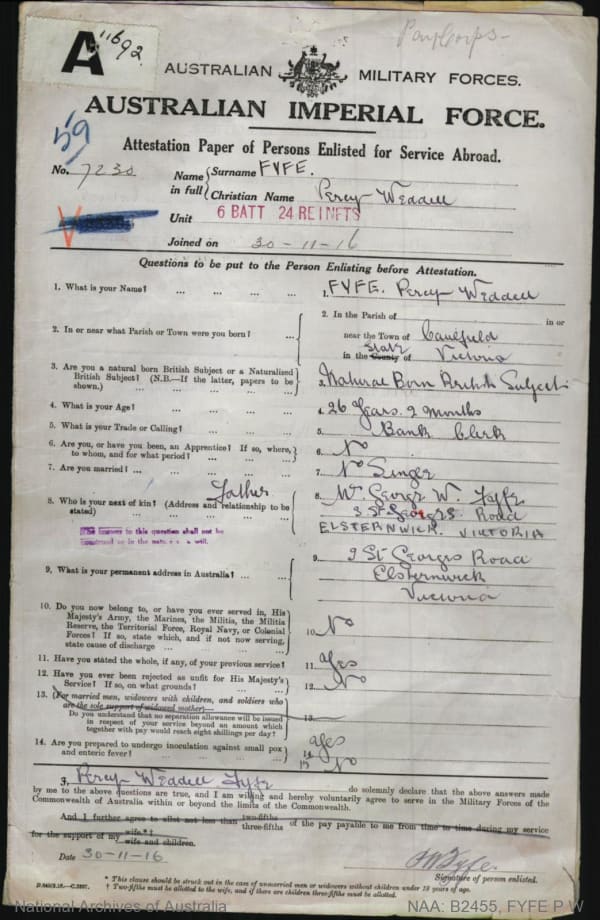 A 11692
Pay Corps
AUSTRALIAN MILITARY FORCES.
AUSTRALIAN IMPERIAL FORCE.
59
Attestation Paper of Persons Enlisted for Service Abroad.
No. 7230 Name in full { Surname FYFE.
Christian Name Percy Weddell
Unit 6 BATT 24 REINFTS
Joined on 30-11-16
Questions to be put to the Person Enlisting before Attestation.
1. What is your Name? ... ... ... ... 1. FYFE. Percy Weddell
2. In or near what Parish or Town were you born? ... 2. In the Parish of in or
near the Town of Caulfield
in the County of State Victoria
3. Are you a natural born British Subject or a Naturalised
British Subject? (N.B.—If the latter, papers to be
shown.) ... ... ... ... 3. Natural Born British Subject
4. What is your Age? ... ... ... ... 4. 26 Years. 2 Months
5. What is your Trade or Calling? ... ... ... 5. Bank Clerk
6. Are you, or have you been, an Apprentice? If so, where,
to whom, and for what period? ... ... ... 6. No
7. Are you married? ... ... ... ... 7. No Single
8. Who is your next of kin? (Address and relationship to be
stated) ... ... ... ... Father 8. Mr George W. Fyffe
St Georges Road
ELSTERNWICK. VICTORIA
The answer to this question shall not be
construed as in the nature of a will.
9. What is your permanent address in Australia? ... ... 9. St Georges Road
Elsternwick
Victoria
10. Do you now belong to, or have you ever served in, His
Majesty's Army, the Marines, the Militia, the Militia
Reserve, the Territorial Force, Royal Navy, or Colonial
Forces? If so, state which, and if not now serving,
state cause of discharge ... ... ... 10. No
11. Have you stated the whole, if any, of your previous service? 11. Yes
12. Have you ever been rejected as unfit for His Majesty's
Service? If so, on what grounds? ... ... ... 12. No
13. (For married men, widowers with children, and soldiers who
are the sole support of widowed mother)—
Do you understand that no separation allowance will be issued
in respect of your service beyond an amount which
together with pay would reach eight shillings per day? 13. —
14. Are you prepared to undergo inoculation against small pox
and enteric fever? ... ... ... ... 14 Yes
15 No
I, Percy Weddell Fyfe do solemnly declare that the above answers made
by me to the above questions are true, and I am willing and hereby voluntarily agree to serve in the Military Forces of the
Commonwealth of Australia within or beyond the limits of the Commonwealth.
And I further agree to allot not less than two-fifths three-fifths of the pay payable to me from time to time during my service
for the support of my wife.*† wife and children.
Date 30-11-16 PWFyfe
Signature of person enlisted.
* This clause should be struck out in the case of unmarried men or widowers without children under 18 years of age.
† Two-fifths must be allotted to the wife, and if there are children three-fifths must be allotted.
National Archives of Australia NAA: B2455, FYFE P W